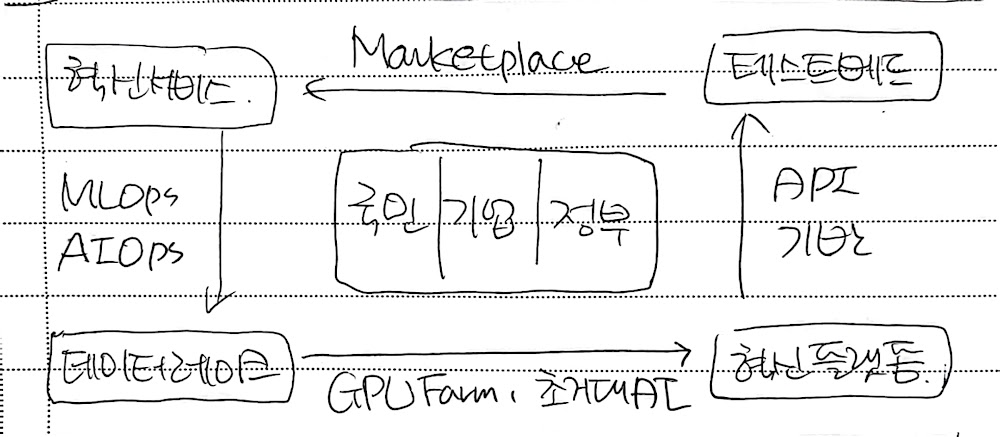 Marketplace
혁신서비스.
테스트베드
MLOps
AIOps
국민 기업 정부
API
기반
데이터레이크
GPU Farm, 초거대AI
혁신플랫폼.